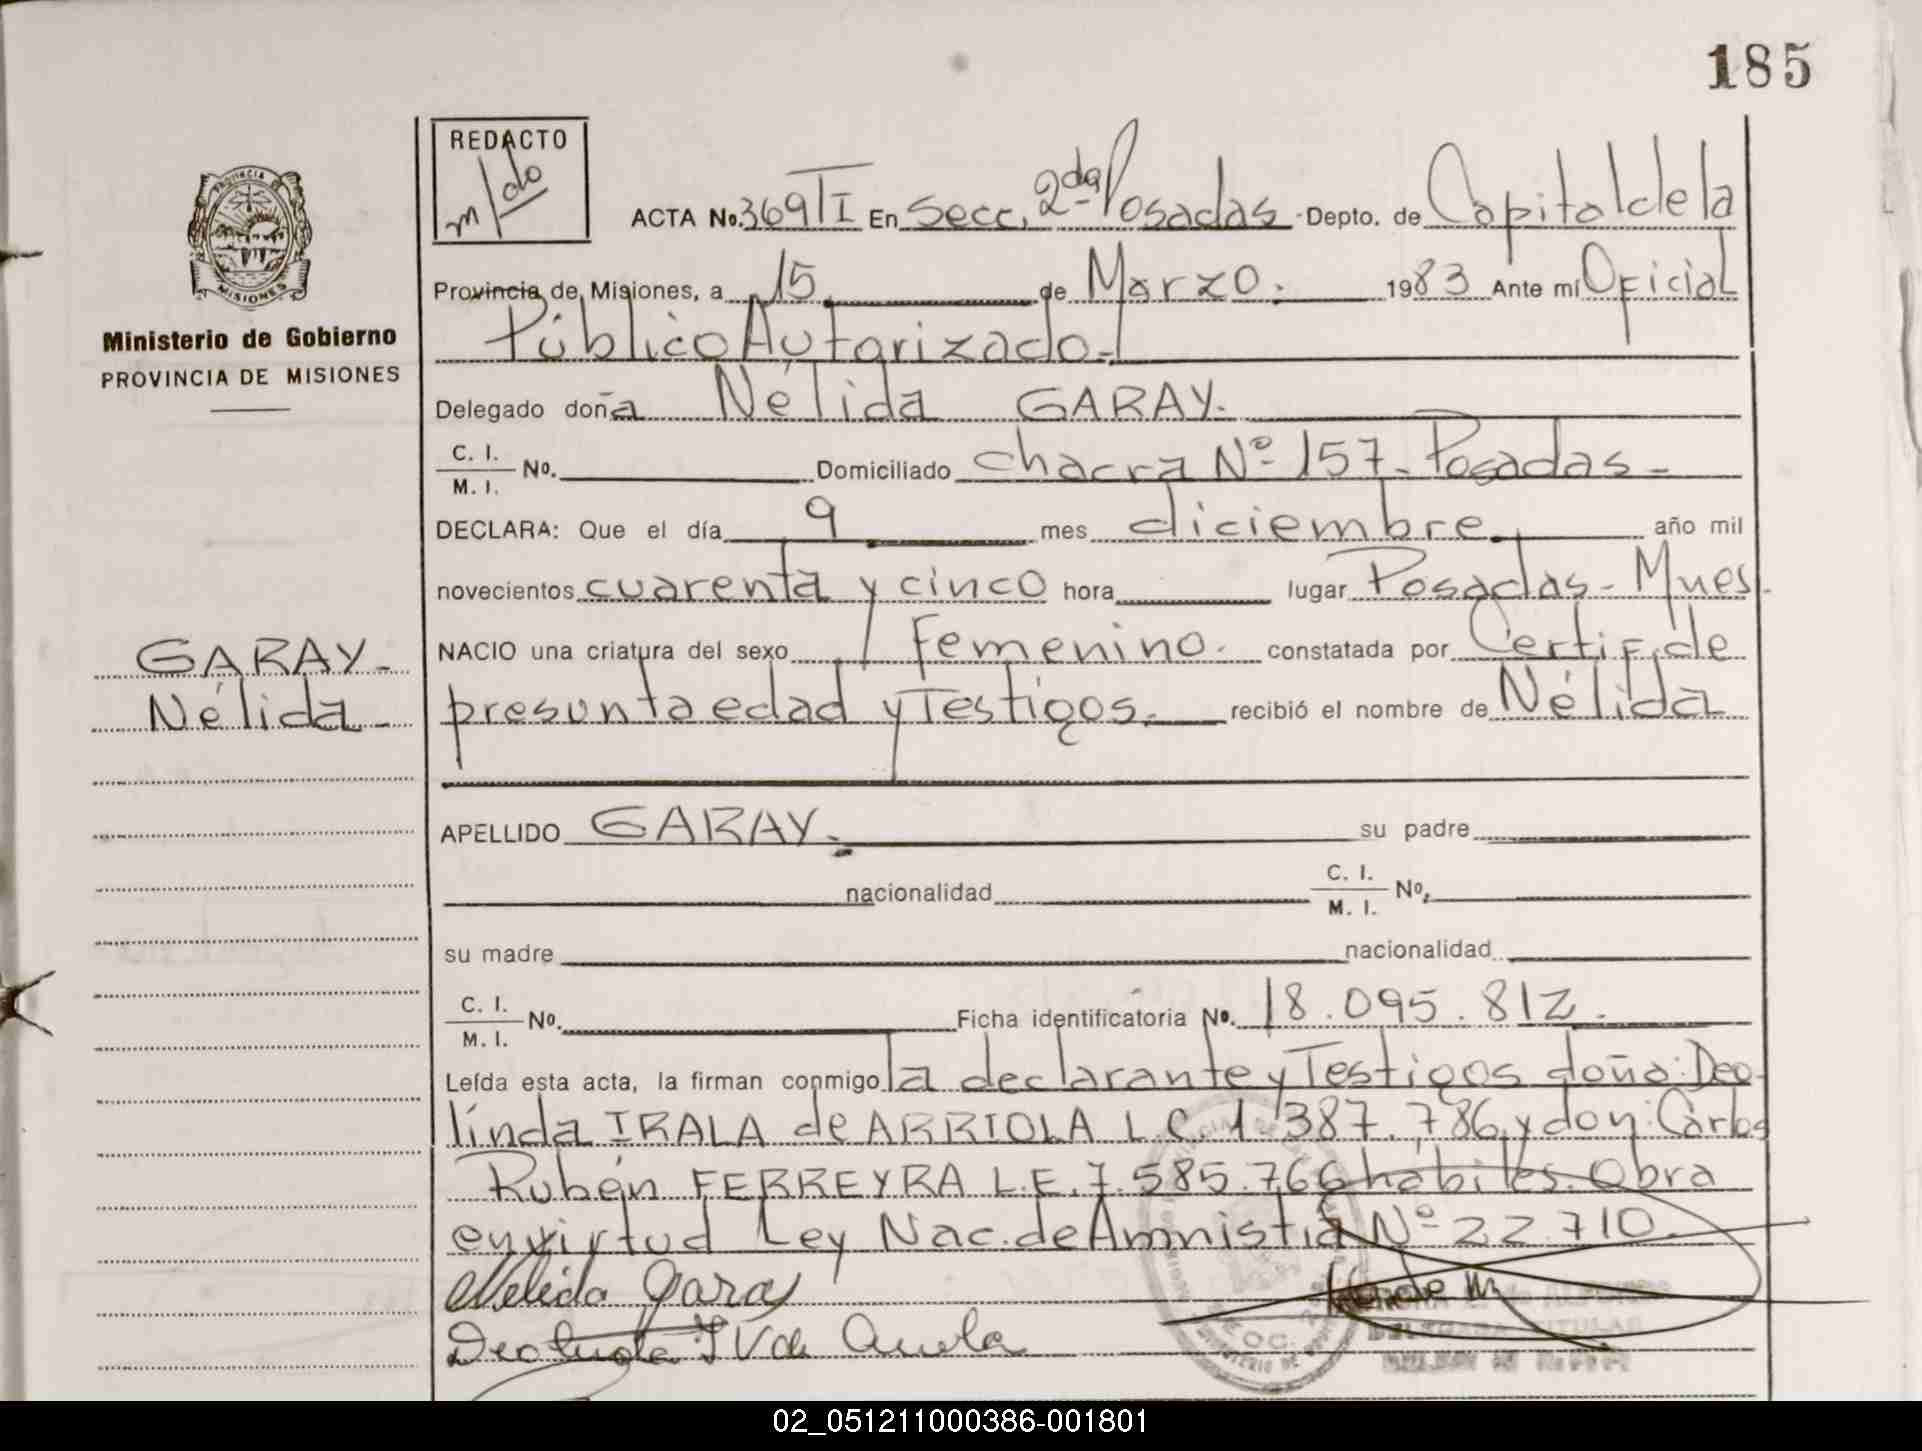 185
REDACTO
m/do
ACTA No. 369 T I En Secc. 2da. Posadas - Depto. de Capital de la
Provincia de Misiones, a 15 de Marzo. 1983 Ante mí Oficial
Público Autorizado.-
Delegado doña Nélida GARAY.
C. I.
M. I. No. Domiciliado chacra Nº 157 - Posadas -
DECLARA: Que el día 9 mes diciembre. año mil
novecientos cuarenta y cinco hora lugar Posadas - Mnes.
NACIO una criatura del sexo Femenino. constatada por Certif. de
presunta edad y Testigos. recibió el nombre de Nélida
APELLIDO GARAY. su padre
nacionalidad C. I.
M. I. No.
su madre nacionalidad
C. I.
M. I. No. Ficha identificatoria No. 18.095.812.
Leída esta acta, la firman conmigo la declarante y Testigos doña: Deo-
linda IRALA de ARRIOLA L.C. 1.387.786 y don: Carlos
Rubén FERREYRA L.E. 7.585.766 hábiles. Obra
en virtud Ley Nac. de Amnistía Nº 22.710.
Nelida Garay
PROVINCIA
MISIONES
Ministerio de Gobierno
PROVINCIA DE MISIONES
GARAY -
Nélida -
DELEGADA TITULAR
02_051211000386-001801